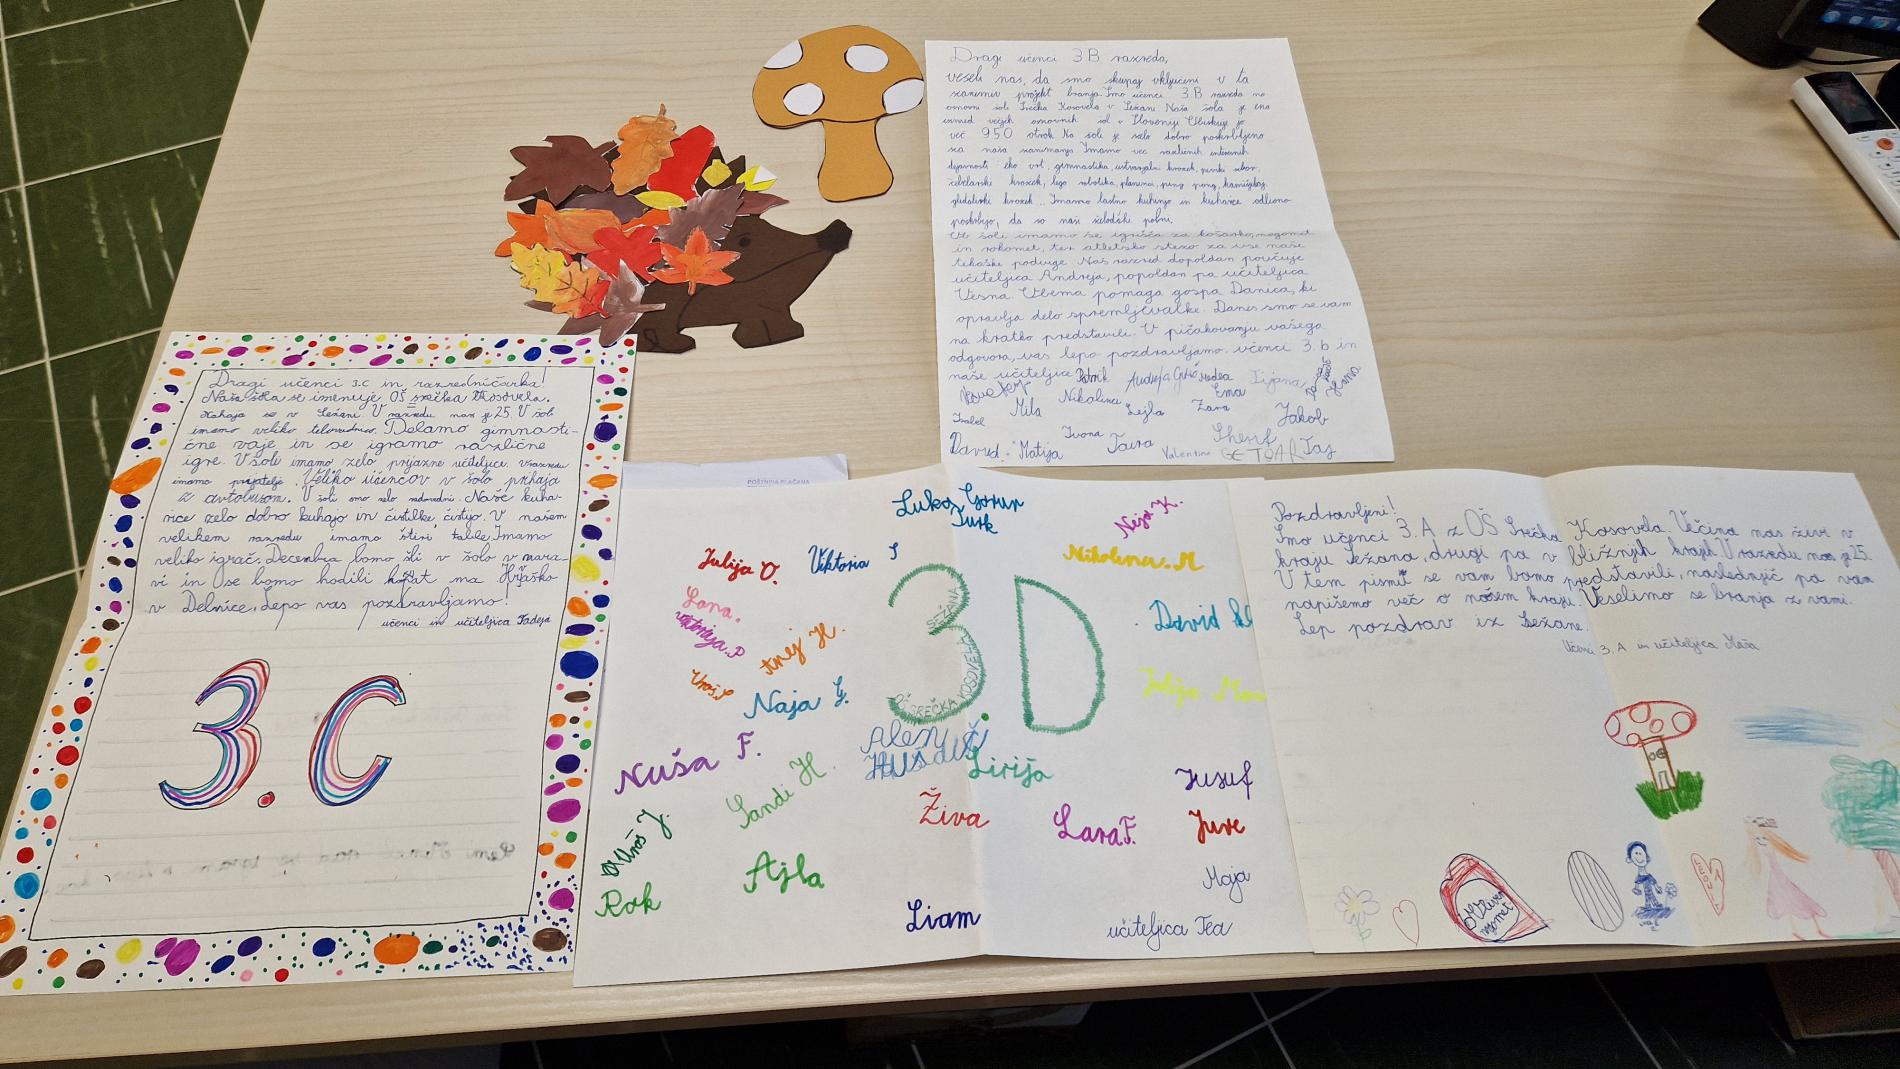 Dragi učenci 3.B razreda,
veseli nas, da smo skupaj vključeni v ta
zanimiv projekt branja. Smo učenci 3.B razreda na
osnovni šoli Srečka Kosovela v Sežani. Naša šola je ena
izmed večjih osnovnih šol v Sloveniji. Obiskuje jo
več 950 otrok. Na šoli je zelo dobro poskrbljeno
za naša zanimanja. Imamo več različnih interesnih
dejavnosti: eko vrt, gimnastika, ustvarjalni krožek, pevski zbor,
čebelarski krožek, lego robotika, planinci, ping pong,
gledališki krožek... Imamo lastno kuhinjo in kuharice odlično
poskrbijo, da so naši želodčki polni.
Ob šoli imamo še igrišča za košarko, nogomet
in rokomet, ter atletsko stezo za vse naše
tekaške podvige. Naš razred dopoldan poučuje
učiteljica Andreja, popoldan pa učiteljica
Vesna. Obema pomaga gospa Danica, ki
opravlja delo spremljevalke. Danes smo se vam
na kratko predstavili. V pičakovanju vašega
odgovora, vas lepo pozdravljamo učenci 3.b in
naše učiteljice
Patrik
Medea
Ema
Hana
Mila
Nikolina
Lejla
Zara
Jakob
Isabel
Ivona
Sherif
David
Matija
Taira
Valentina
GETOAR
Taj
Dragi učenci 3.C in razredničarka!
Naša šola se imenuje OŠ Srečka Kosovela.
Nahaja se v Sežani. V razredu nas je 25. V šoli
imamo veliko telovadnico. Delamo gimnasti-
čne vaje in se igramo različne
igre. V šoli imamo zelo prijazne učiteljice. V razredu
imamo prijatelje. Veliko učencov v šolo prihaja
z avtobusom. V šoli smo zelo radovedni. Naše kuha-
rice zelo dobro kuhajo in čistilke, čistijo. V našem
velikem razredu imamo štiri table. Imamo
veliko igrač. Decembra bomo šli v šolo v nara-
vi in se bomo hodili kopat na Hrvaško
v Delnice. Lepo vas pozdravljamo!
učenci in učiteljica Tadeja
3.C
POŠTNINA PLAČANA
Luka Gorup
Turk
Neja K.
Julija O.
Viktoria S
Nikolina. M
3D
SEŽANA
OŠ SREČKA KOSOVELA
Lana.
Viktorija.P
tnej H.
David
Uroš.S
Naja G.
Julija
Alen
HUŠDIČ
Nuša F.
Lirija
Jusuf
Sandi H.
Živa
Lara F.
Jure
Uroš J.
Ajla
Maja
Rok
Liam
učiteljica Tea
Pozdravljeni!
Smo učenci 3.A z OŠ Srečka Kosovela. Večina nas živi v
kraju Sežana, drugi pa v bližnjih krajih. V razredu nas je 25.
V tem pismu se vam bomo predstavili, naslednjič pa vam
napišemo več o našem kraju. Veselimo se branja z vami.
Lep pozdrav iz Sežane.
Učenci 3.A in učiteljica Maša